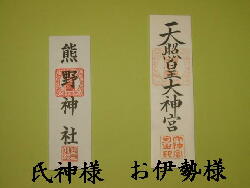 天照皇大神宮
熊野神社
氏神様 お伊勢様